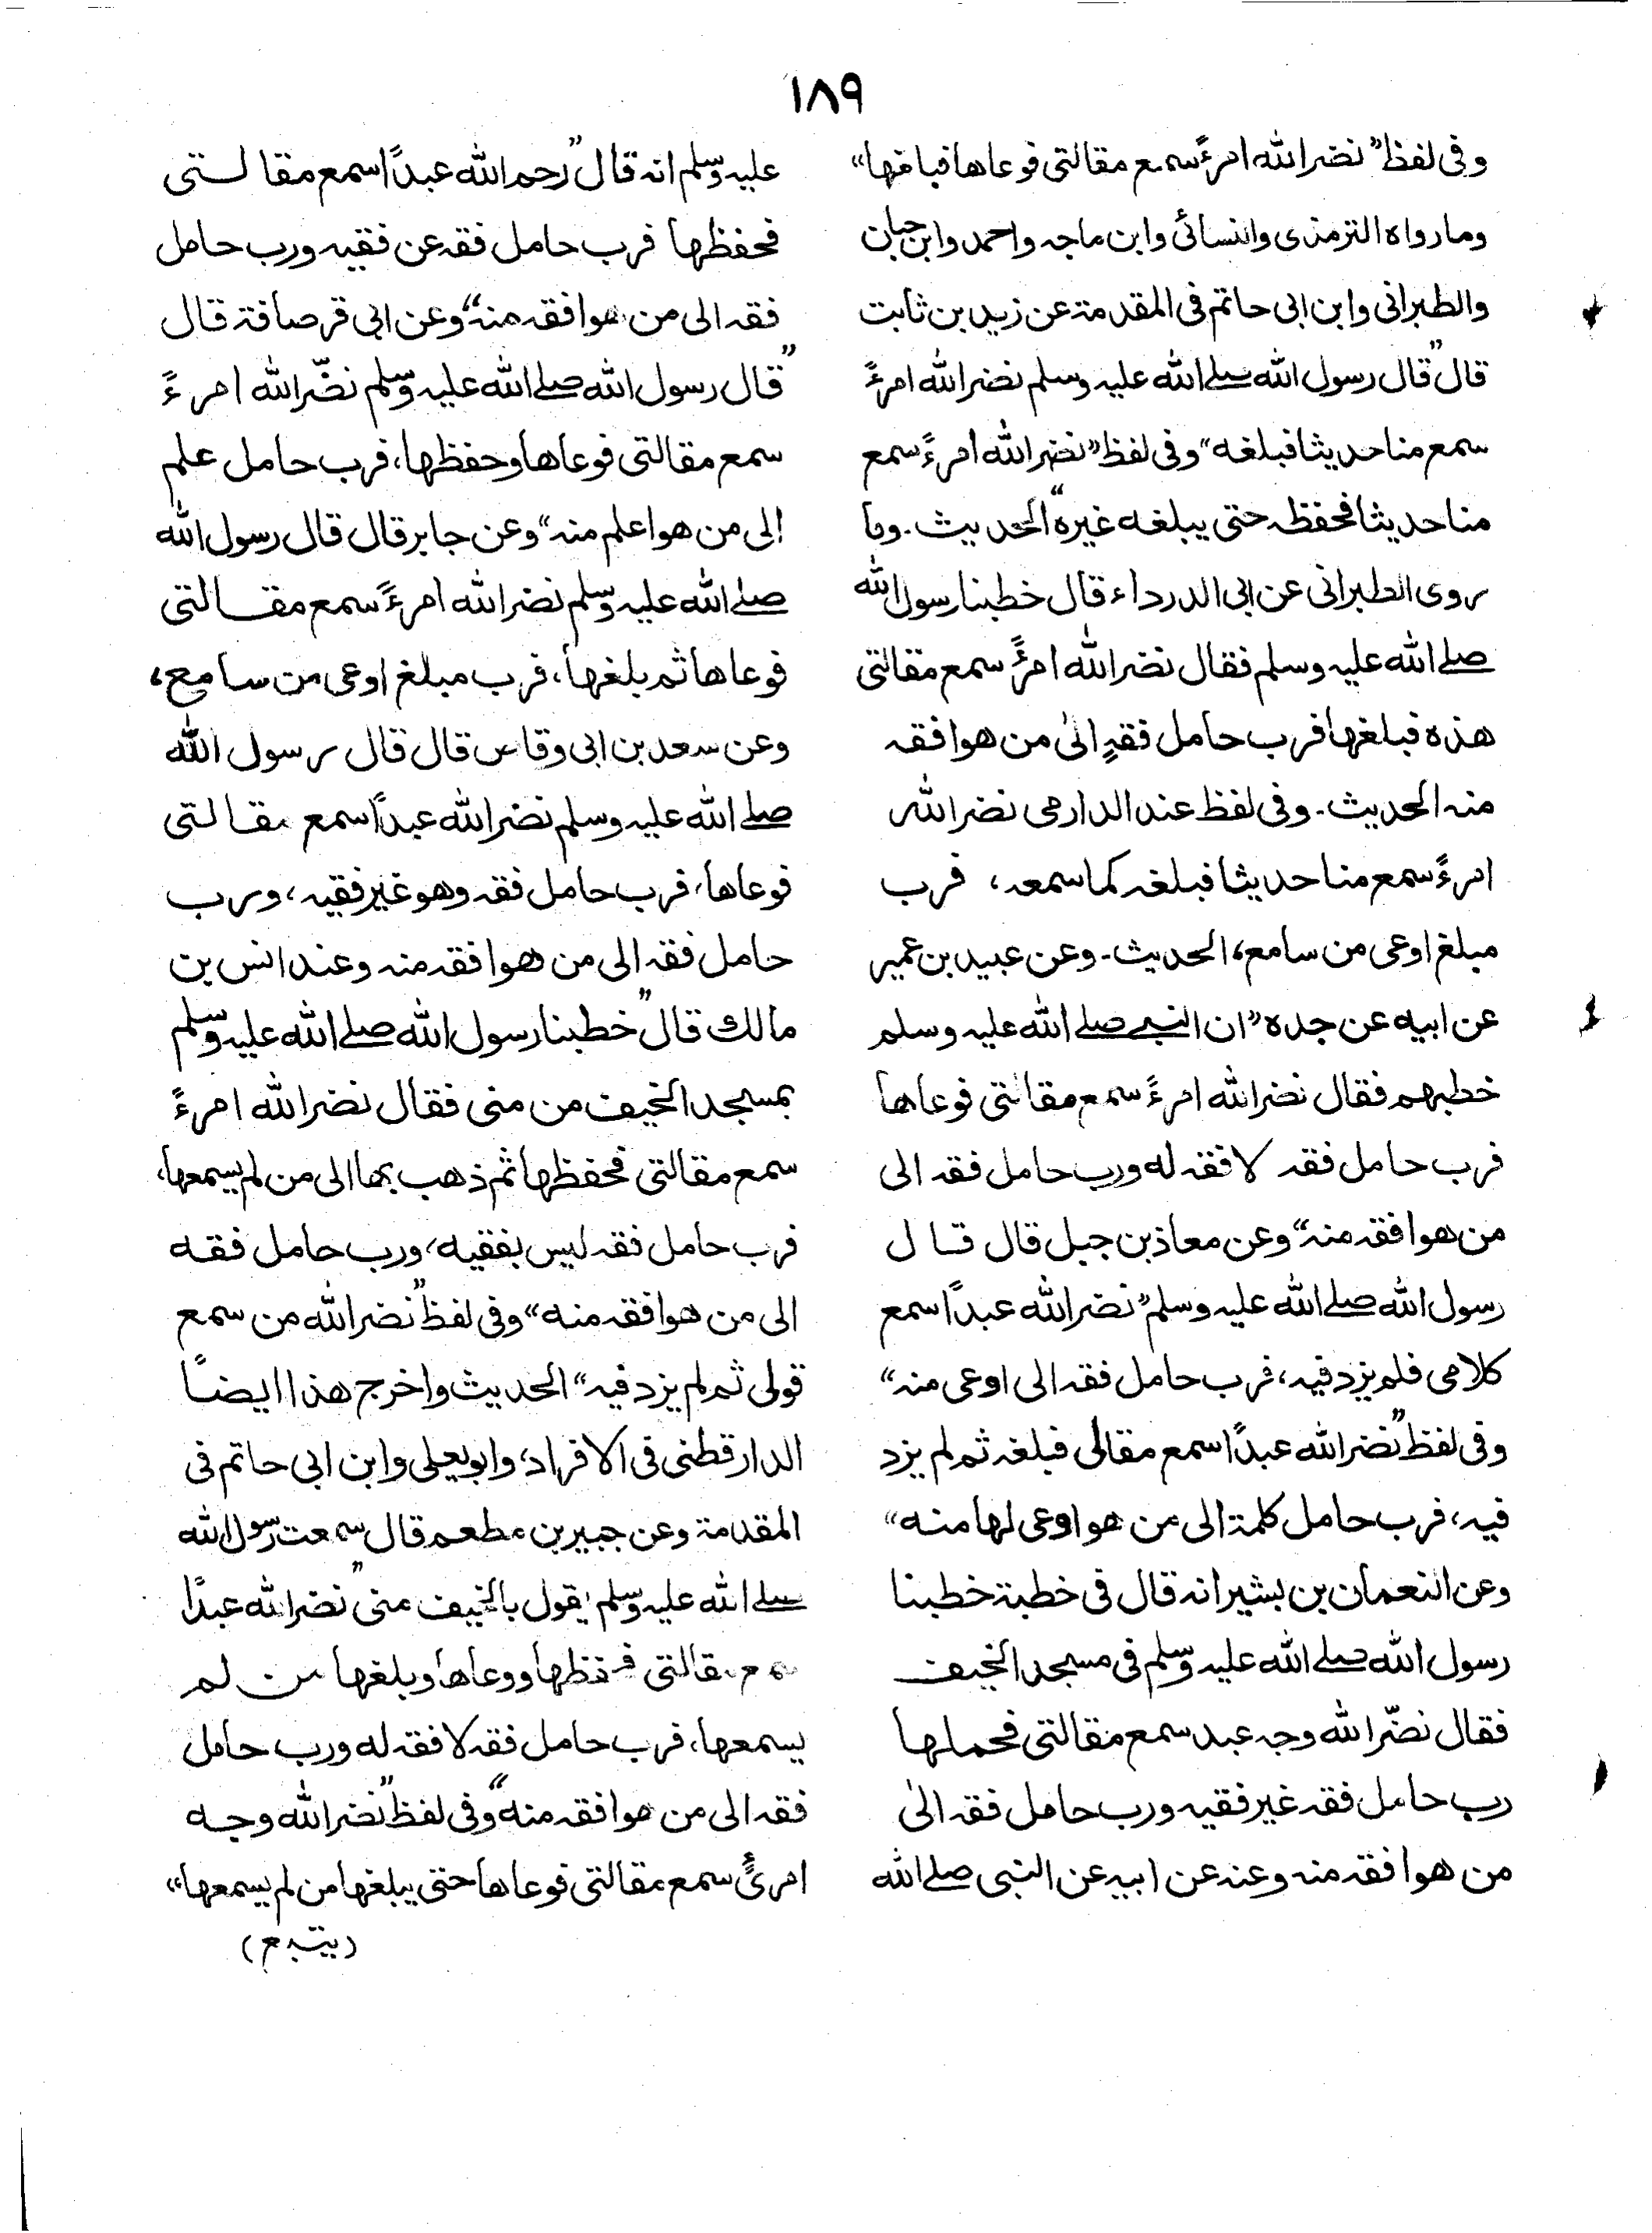 ١٨٩
وفى لفظ "نضر الله امرءً سمع مقالتى فوعاها فبلغها"
وما رواه الترمذى والنسائى وابن ماجه واحمد وابن حبان
والطبرانى وابن ابى حاتم فى المقدمة عن زيد بن ثابت
قال "قال رسول الله صلے الله عليه وسلم نضر الله امرءً
سمع منا حديثا فبلغه" وفى لفظ "نضر الله امرءً سمع
منا حديثا فحفظه حتى يبلغه غيره" الحديث. وما
روى الطبرانى عن ابى الدرداء قال خطبنا رسول الله
صلے الله عليه وسلم فقال نضر الله امرءً سمع مقالتى
هذه فبلغها فرب حامل فقهٍ الىٰ من هو افقه
منه الحديث. وفى لفظ عند الدارمى نضر الله
امرءً سمع منا حديثا فبلغه كما سمعه، فرب
مبلغ اوعى من سامع، الحديث- وعن عبيد بن عمير
عن ابيه عن جده "ان النبے صلے الله عليه وسلم
خطبهم فقال نضر الله امرءً سمع مقالتى فوعاها
فرب حامل فقه لا فقه له ورب حامل فقه الى
من هو افقه منه" وعن معاذ بن جبل قال قال
رسول الله صلے الله عليه وسلم "نضر الله عبداً سمع
كلامى فلم يزد فيه، فرب حامل فقه الى اوعى منه"
وفى لفظ "نضر الله عبداً سمع مقالى فبلغه ثم لم يزد
فيه، فرب حامل كلمة الى من هو اوعى لها منه"
وعن النعمان بن بشير انه قال فى خطبة خطبنا
رسول الله صلے الله عليه وسلم فى مسجد الخيف
فقال نضّر الله وجه عبد سمع مقالتى فحملها
رب حامل فقه غير فقيه ورب حامل فقه الىٰ
من هو افقه منه وعنه عن ابيه عن النبى صلے الله
عليه وسلم انه قال "رحم الله عبداً سمع مقالتى
فحفظها فرب حامل فقه عن فقيه ورب حامل
فقه الى من هو افقه منه" وعن ابى قرصافة قال
"قال رسول الله صلے الله عليه وسلم نضّر الله امرءً
سمع مقالتى فوعاها وحفظها، فرب حامل علم
إلى من هو اعلم منه" وعن جابر قال قال رسول الله
صلے الله عليه وسلم نضر الله امرءً سمع مقالتى
فوعاها ثم بلغها، فرب مبلغ اوعى من سامع،
وعن سعد بن ابى وقاص قال قال رسول الله
صلے الله عليه وسلم نضر الله عبداً سمع مقالتى
فوعاها، فرب حامل فقه وهو غير فقيه، ورب
حامل فقه الى من هو افقه منه وعند انس بن
مالك قال "خطبنا رسول الله صلے الله عليه وسلم
بمسجد الخيف من منى فقال نضر الله امرءً
سمع مقالتى فحفظها ثم ذهب بها الى من لم يسمعها،
فرب حامل فقه ليس بفقيه، ورب حامل فقه
الى من هو افقه منه" وفى لفظ "نضر الله من سمع
قولى ثم لم يزد فيه" الحديث واخرج هذا ايضاً
الدارقطنى فى الافراد، وابو يعلى وابن ابى حاتم فى
المقدمة وعن جبير بن مطعم قال سمعت رسول الله
صلے الله عليه وسلم يقول بالخيف منى "نضر الله عبداً
سمع مقالتى فحفظها ووعاها وبلغها من لم
يسمعها، فرب حامل فقه لا فقه له ورب حامل
فقه الى من هو افقه منه" وفى لفظ "نضر الله وجه
امرئً سمع مقالتى فوعاها حتى يبلغها من لم يسمعها"
(يتبع)